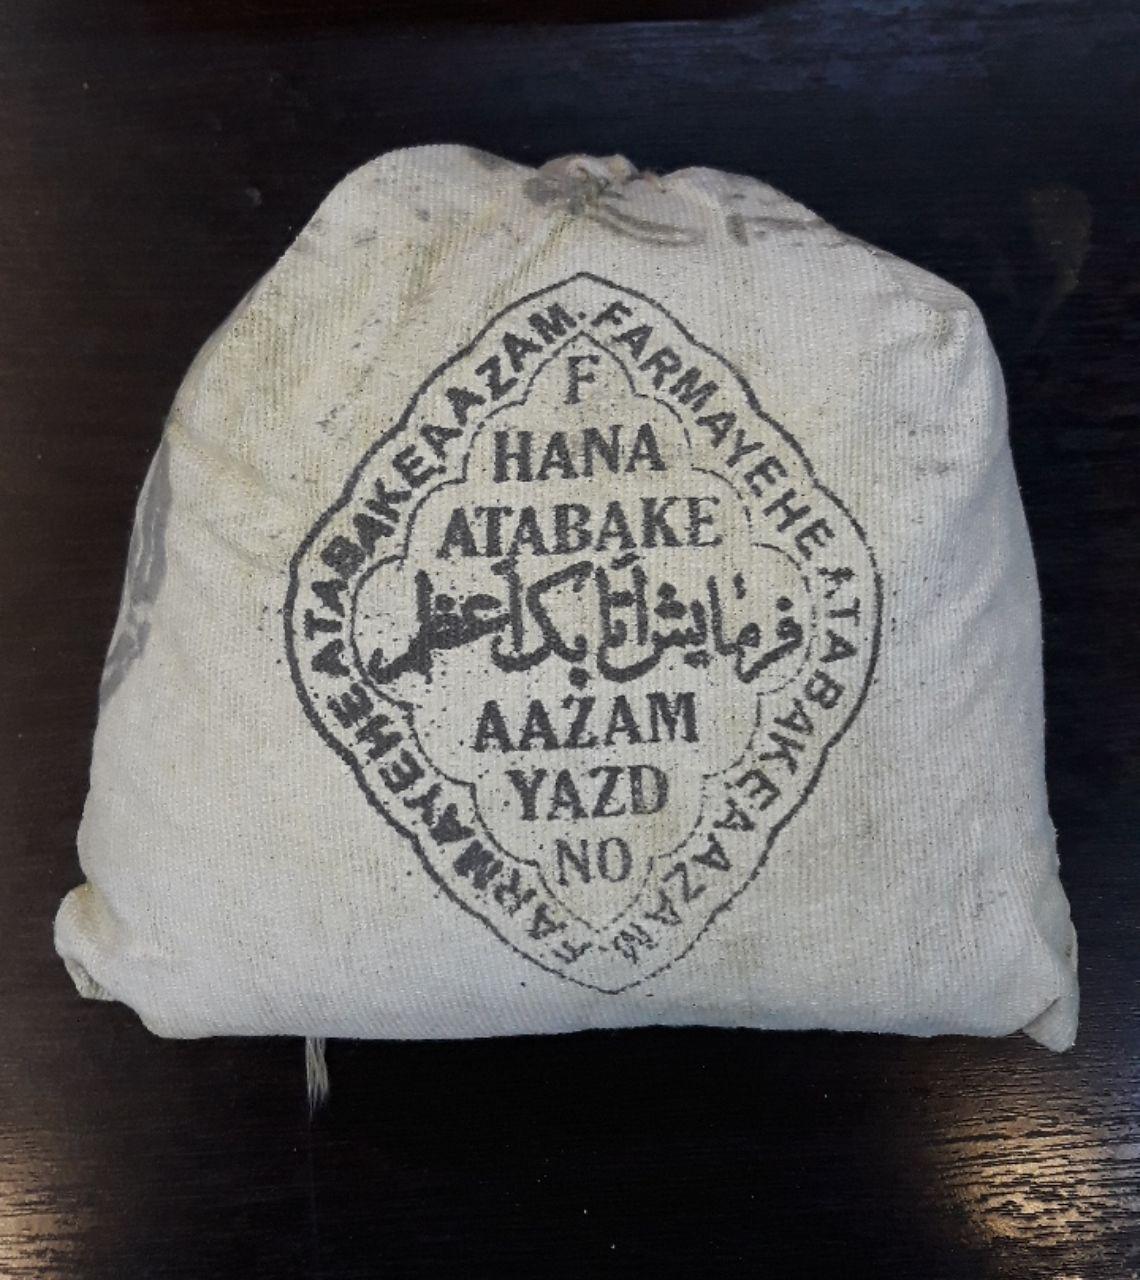 FARMAYEHE ATABAKEAAZAM. FARMAYEHE ATABAKEAAZAM.
F
HANA
ATABAKE
فرمایش اتابک اعظم
AAZAM
YAZD
NO